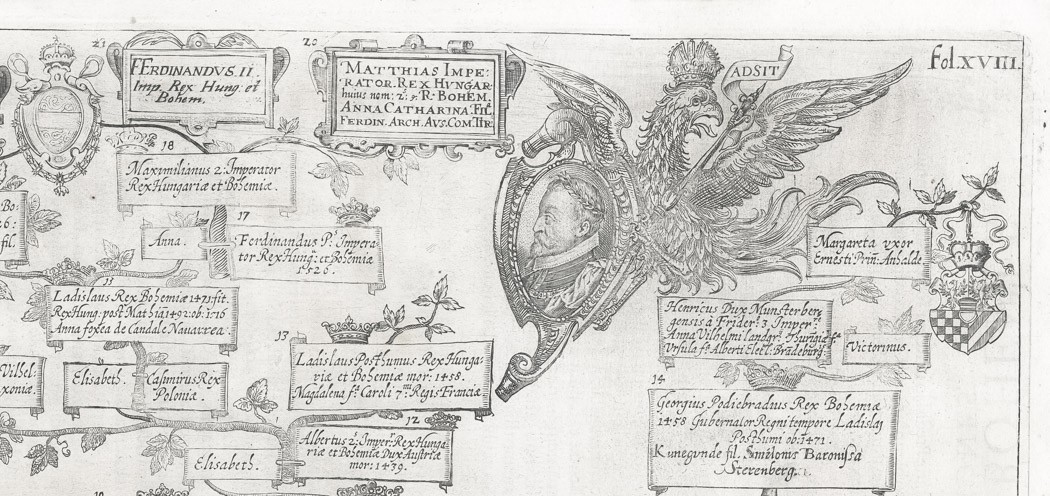 fol. XVIII.
21
FERDINANDVS. II.
Imp. Rex Hung: et
Bohem.
20
MATTHIAS IMPE:
RATOR. REX HVNGAR
huius nom: 2: R. BOHEM.
ANNA CATHARINA. Fil.
FERDIN. ARCH. AVS. COM. TIR
ADSIT
18
Maximilianus 2: Imperator
Rex Hungariæ et Bohemiæ.
Bo:
26:
fil.
Anna.
17
Ferdinandus P.s Impera
tor Rex Hung: et Bohemiæ
1526.
Margareta vxor
Ernesti Prin: Anhalde
Ladislaus Rex Bohemiæ 1471 fit.
Rex Hung: post Mathiã 1492: ob: 1:16
Anna foxea de Candale Nauarrea.
Henricus Dux Munsterber
gensis à Frider: 3 Imper:
Anna Vilhelmi landgr: Thurigiæ fa
Vrsula fa. Alberti Elect: Brãdeburg:
Victorinus.
13
Ladislaus Posthumus Rex Hunga-
riæ et Bohemiæ mor: 1458.
Magdalena fa. Caroli 7mi Regis Franciæ
Vilhel-
xoniæ.
Elisabeth.
Casimirus Rex
Poloniæ.
14
Georgius Podiebradius Rex Bohemiæ
1458 Gubernator Regni tempore Ladislaj
Posthumi ob: 1471.
Kunegunde fil. Smilonis Baronissa
Sterenberg.
12
Albertus 2: Imper: Rex Hunga:
riæ et Bohemiæ Dux Austriæ
mor: 1439.
Elisabeth.